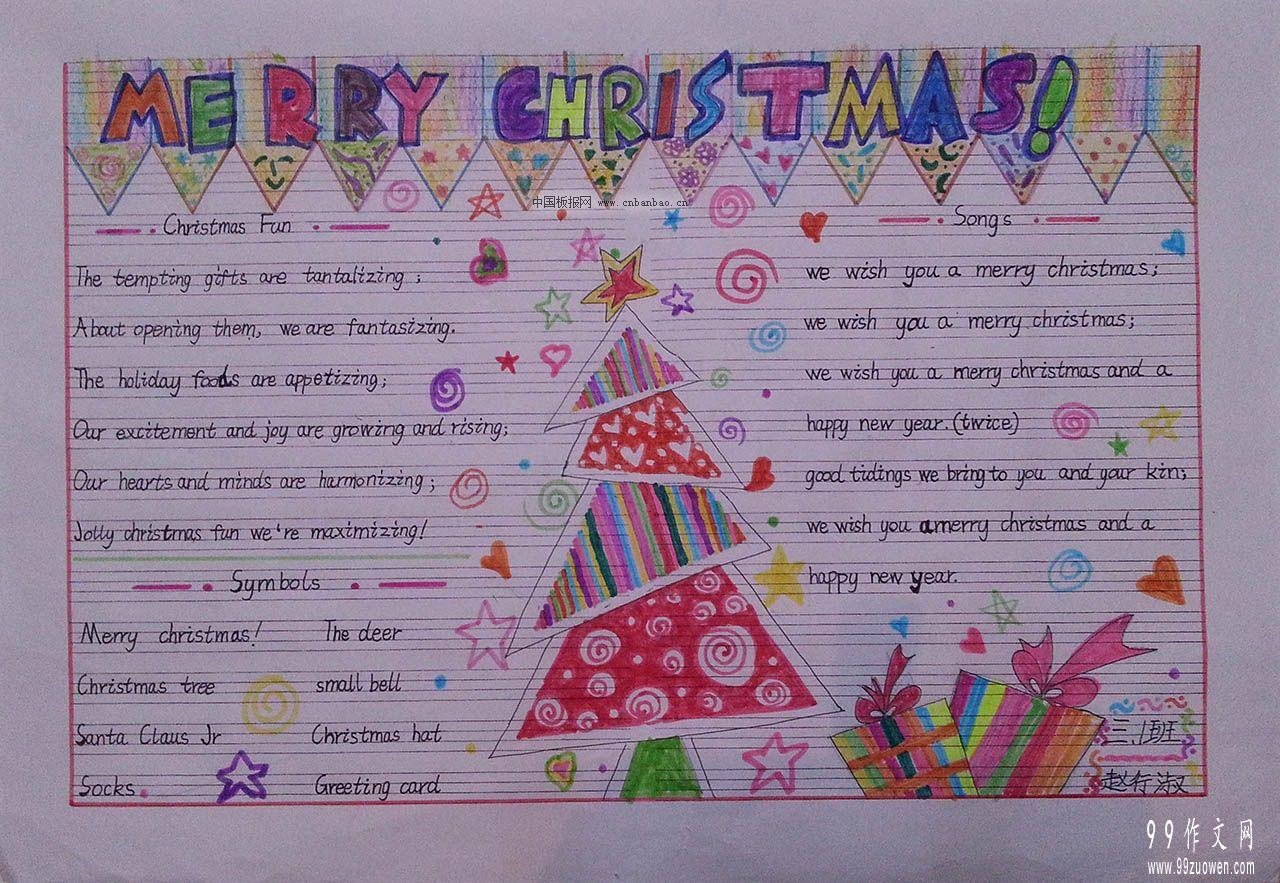 MERRY CHRISTMAS!
中国板报网 www.cnbanbao.cn
Christmas Fun
The tempting gifts are tantalizing;
About opening them, we are fantasizing.
The holiday foods are appetizing;
Our excitement and joy are growing and rising;
Our hearts and minds are harmonizing;
Jolly christmas fun we're maximizing!
Symbols
Merry christmas! The deer
Christmas tree small bell
Santa Claus Jr Christmas hat
Socks Greeting card
Songs
we wish you a merry christmas;
we wish you a merry christmas;
we wish you a merry christmas and a
happy new year.(twice)
good tidings we bring to you and your kin;
we wish you a merry christmas and a
happy new year.
三.1班
赵行淑
99作文网
www.99zuowen.com